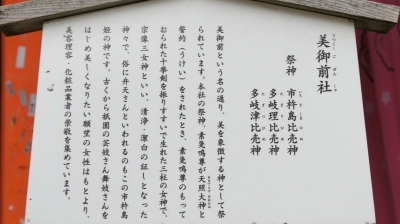 美御前社
うつくしごぜんしゃ
祭神
市杵島比売神
いちきしまひめのかみ
多岐理比売神
たぎりひめのかみ
多岐津比売神
たぎつひめのかみ
美御前という名の通り、美を象徴する神として祭
られています。本社の祭神、素戔嗚尊が天照大神と
誓約(うけい)をされたとき、素戔嗚尊のもって
おられた十拳剣を振りすすいで生れた三社の女神で、
宗像三女神といい、清浄・潔白の証しとなった
神々で、俗に弁天さんといわれるのもこの市杵島
姫の神です。古くから祇園の芸妓さん舞妓さんを
はじめ美しくなりたい願望の女性はもとより、
美容理容・化粧品業者の崇敬を集めています。